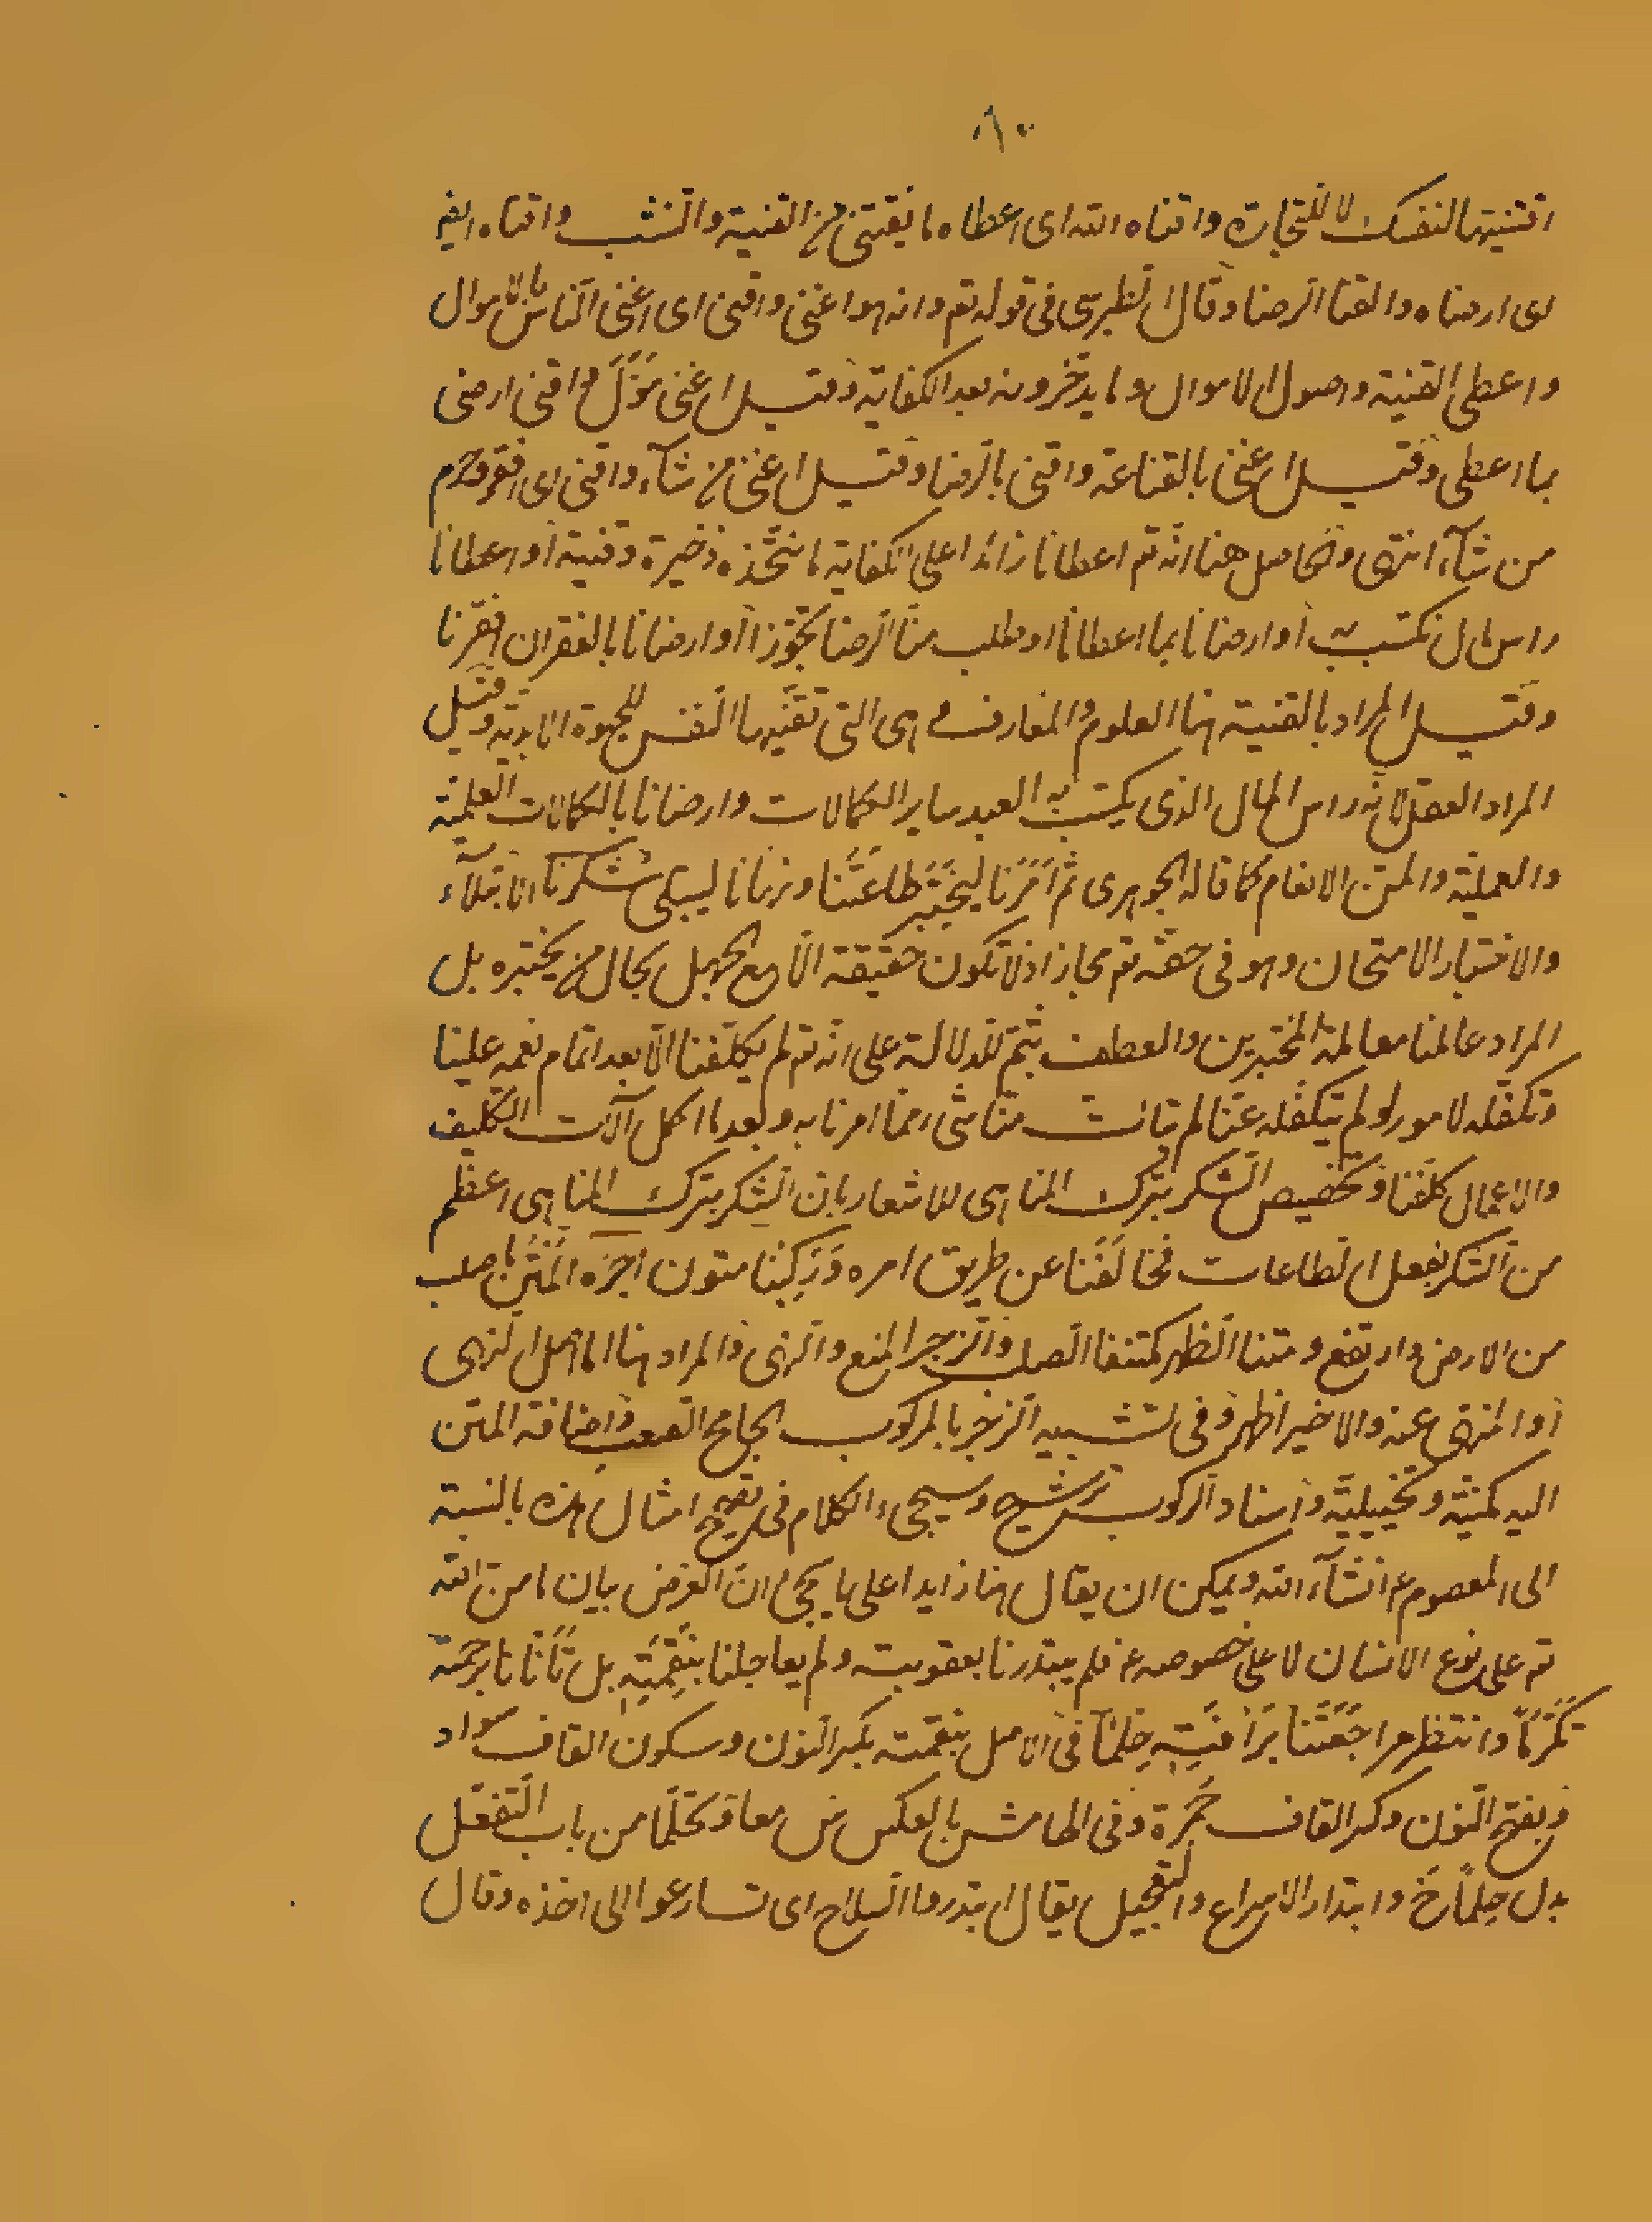 ٦٠
اقتنيتها لنفسك لا للتجارة واقناه الله اى اعطاه ما يقتنى من القنية والنشب واقناه ايض
اى ارضاه والقنا الرضا وقال الطبرسى فى قوله تع وانه هو اغنى واقنى اى اغنى الناس بالاموال
واعطى القنية واصول الاموال وما يدخرونه بعد الكفاية وقيل اغنى موّل واقنى ارضى
بما اعطى وقيل اغنى بالقناعة واقنى بالرضا وقيل اغنى من شآء واقنى اى افقر وحرم
من شآء انتهى والحاصل هنا انّه تع اعطانا زائدا على الكفاية ما نتّخذه ذخيرة وقنية أو اعطانا
راس مال نكتسب به أو ارضانا بما اعطانا او طلب منّا الرضا تجوّزا أو ارضانا بالفقر ان افقرنا
وقيل المراد بالقنية هنا العلوم والمعارف اى التى تقتنيها النفس للحيوة الابدية وقيل
المراد العقل لانه راس المال الذى يكتسب به العبد ساير الكمالات وارضانا بالكمالات العلميّة
والعمليّة والمنّ الانعام كما قاله الجوهرى ثمّ اَمَرَنا ليَختَبِرَ طاعَتَنا ونهانا ليبتلى شُكرَنا الابتلآء
والاختبار الامتحان وهو فى حقّه تع مجاز اذ لا تكون حقيقة الّا مع الجهل بحال من يختبره بل
المراد عاملنا معاملة المختبرين والعطف بثمّ للدلالة على انّه تع لم يكلّفنا الّا بعد اتمام نعمه علينا
وتكفّله لامور لو لم يتكفّله عنّا لم يتأت منّا شىء مما امرنا به وبعد ما اكمل آلات التكليف
والاعمال كلّفنا وتخصيص الشكر بترك المناهى للاشعار بان الشكر بترك المناهى اعظم
من الشكر بفعل الطاعات فخالَفنا عن طريق امره وَرَكِبنا متون زجره المتن ما صلب
من الارض وارتفع ومتنا الظهر مكتنفا الصلب والزجر المنع والنهى والمراد هنا اما اهل النهى
أو المنهى عنه والاخير اظهر وفى تشبيه الزجر بالمركوب الجامح الصعب واضافة المتن
اليه مكنيّة وتخييليّة واسناد الركوب ترشيح وسيجىء الكلام فى تصحيح امثال هذه بالنسبة
الى المعصوم ع انشآء الله ويمكن ان يقال هنا زايدا على ما يجئ ان الغرض بيان ما منّ الله
تع على نوع الانسان لا على خصوصه ع فلم يبتدرنا بعقوبته ولم يعاجلنا بنِقمَتِهِ بل تَأنّانا برحمته
تكرّمًا وانتظر مراجَعَتَنا برَأفَتِهِ حِلمًا فى الاصل بنقمته بكسر النون وسكون القاف سواد
وبفتح النون وكسر القاف حُمرة وفى الهامش بالعكس س معا وتحلّمًا من باب التفعّل
بدل حِلمًا خ وابتدار الاسراع والتعجيل يقال ابتدروا السلاح اى تسارعوا الى اخذه وقال